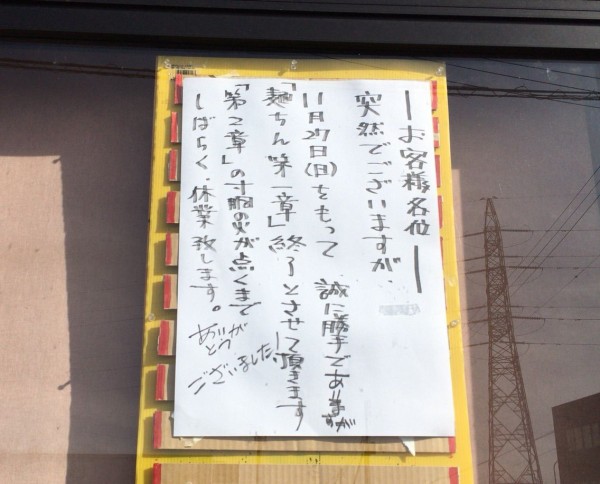 ーお客様各位ー
突然でございますが、
11月27日(日)をもって 誠に勝手でありますが
「麺ちん第一章」終了とさせて頂きます
「第2章」の寸胴の火が点くまで
しばらく、休業致します。
ありがとう
ございました!